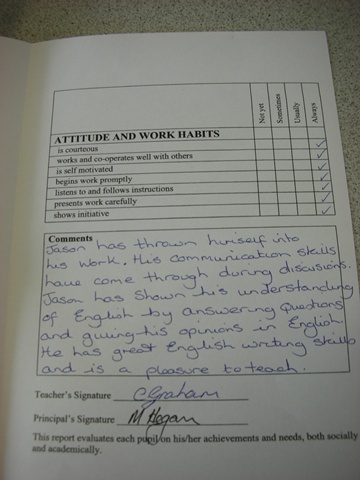 Not yet Sometimes Usually Always
ATTITUDE AND WORK HABITS
is courteous
works and co-operates well with others
is self motivated
begins work promptly
listens to and follows instructions
presents work carefully
shows initiative
Comments
Jason has thrown himself into
his work. His communication skills
have come through during discussions.
Jason has shown his understanding
of English by answering questions
and giving his opinions in English.
He has great English writing skills
and is a pleasure to teach.
Teacher's Signature C Graham
Principal's Signature M Hogan
This report evaluates each pupil on his/her achievements and needs, both socially
and academically.